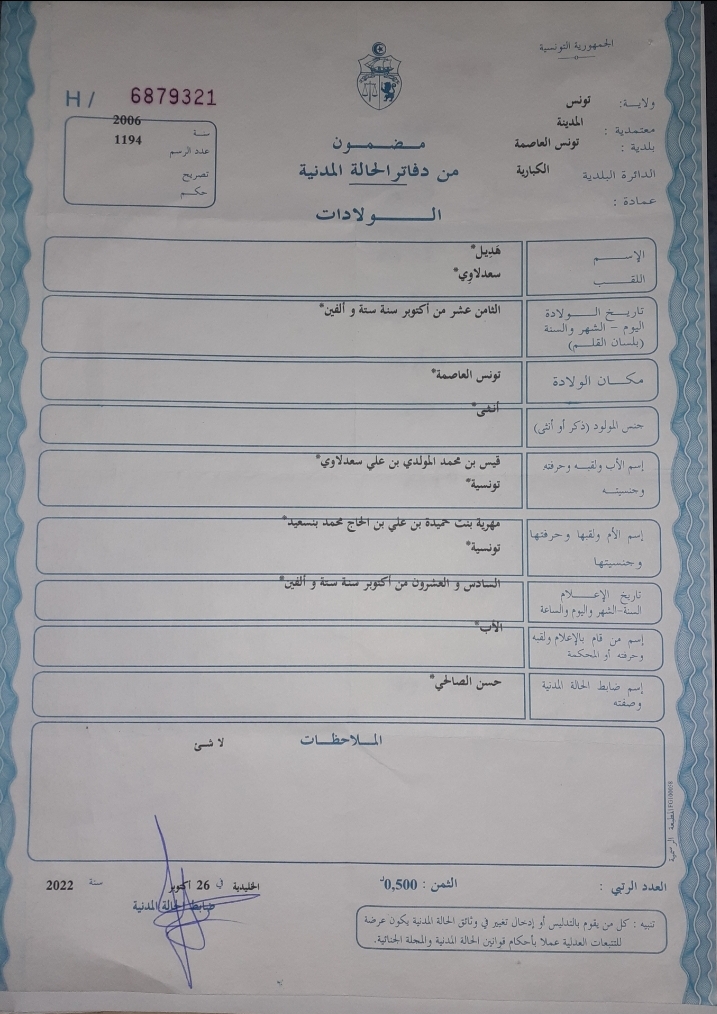 الجمهورية التونسية
ولاية: تونس
معتمدية : المدينة
بلدية : تونس العاصمة
الدائرة البلدية الكبارية
عمادة :
H / 6879321
سنة 2006
عدد الرسم 1194
تصريح
حكم
مضمون
من دفاتر الحالة المدنية
الولادات
الإسم هَدِيل*
اللقب سعدلاوِي*
تاريخ الولادة الثامن عشر من أكتوبر سنة ستة و ألفين*
اليوم - الشهر والسنة
(بلسان القلم)
مكان الولادة تونس العاصمة*
جنس المولود (ذكر أو أنثى) أنثى*
إسم الأب ولقبه وحرفته قيس بن محمد المولدي بن علي سعدلاوي*
وجنسيته تونسية*
إسم الأم ولقبها وحرفتها مهرية بنت حميدة بن علي بن الحاج محمد بنسعيد*
وجنسيتها تونسية*
تاريخ الإعلام السادس و العشرون من أكتوبر سنة ستة و ألفين*
السنة-الشهر واليوم والساعة
إسم من قام بالإعلام ولقبه الأب*
وحرفته أو المحكمة
إسم ضابط الحالة المدنية حسن الصالحي*
وصفته
الملاحظات
لا شئ
المطبعة الرسمية
العدد الرتبي :
الثمن : 0,500د
الخليدية في 26 أكتوبر سنة 2022
ضابط الحالة المدنية
تنبيه : كل من يقوم بالتدليس أو إدخال تغيير في وثائق الحالة المدنية يكون عرضة
للتتبعات العدلية عملا بأحكام قوانين الحالة المدنية والمجلة الجنائية.